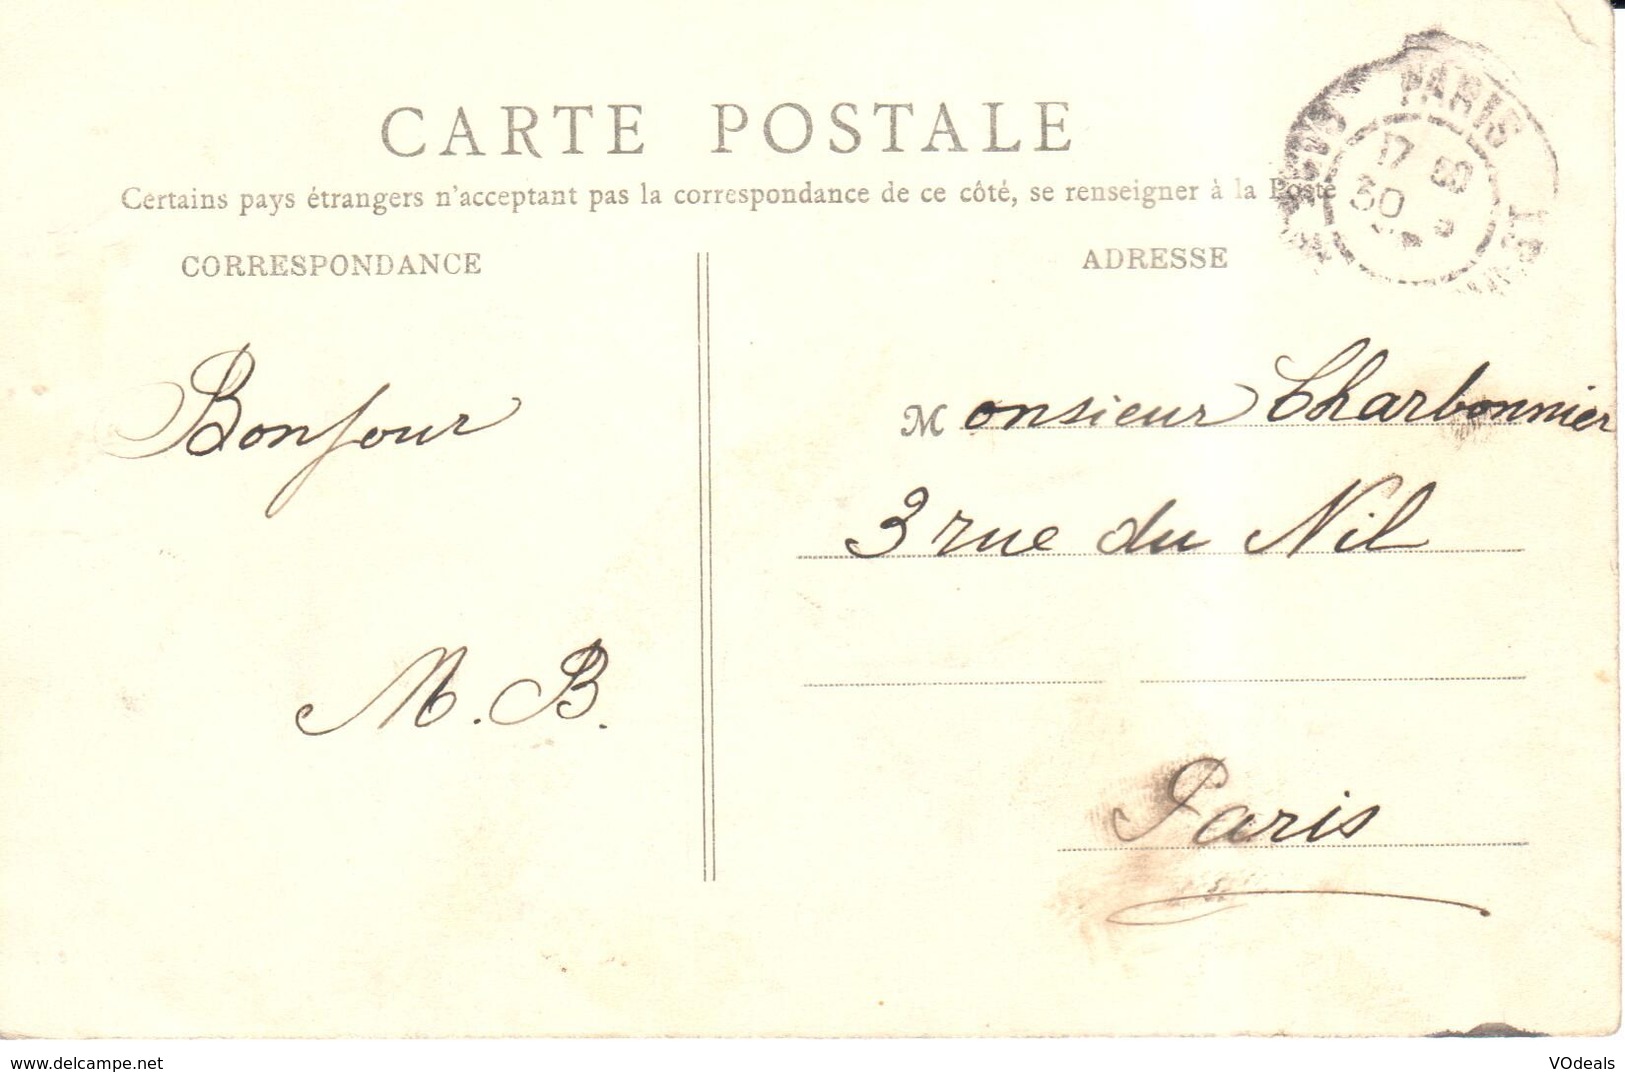 CARTE POSTALE
Certains pays étrangers n'acceptant pas la correspondance de ce côté, se renseigner à la Poste
CORRESPONDANCE
ADRESSE
PARIS
17
30
Bonjour
M. B.
Monsieur Charbonnier
3 rue du Nil
Paris
www.delcampe.net
VOdeals